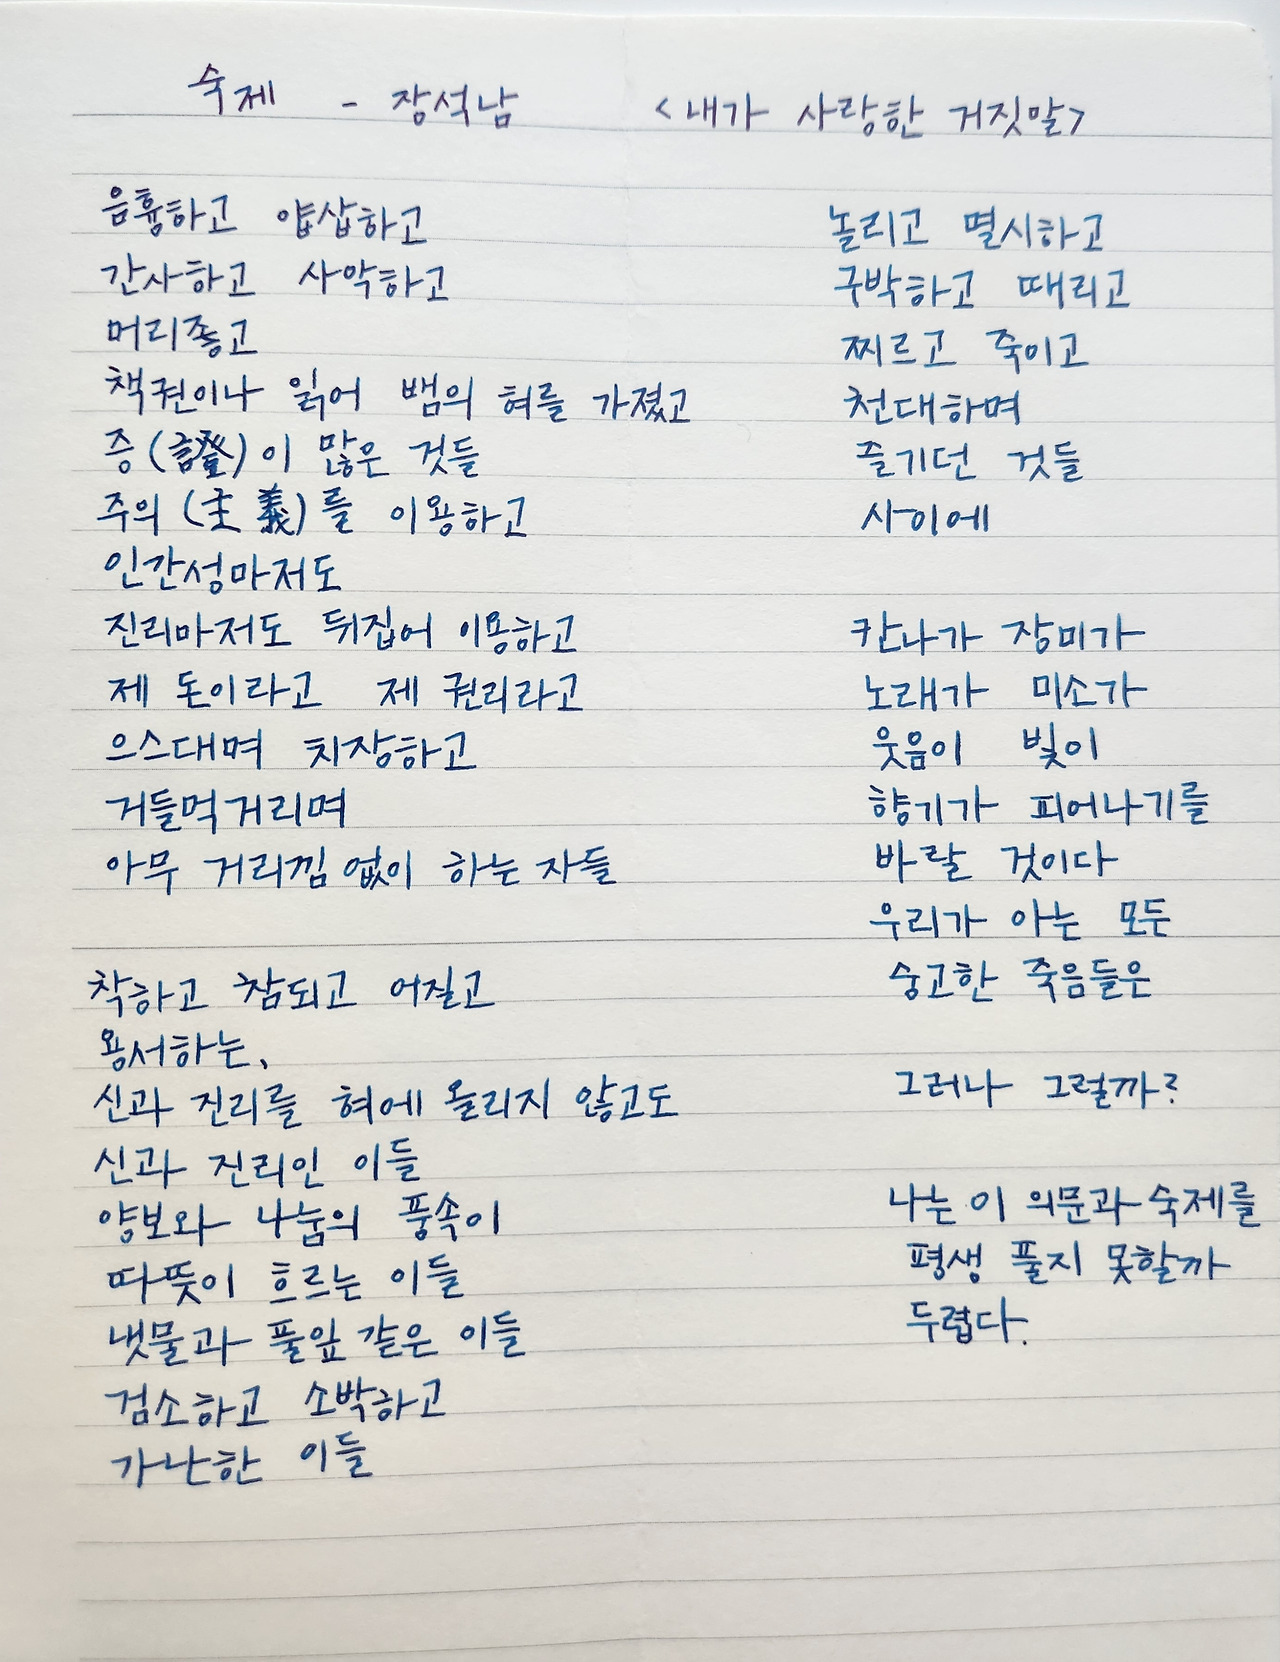 숙제 - 장석남 <내가 사랑한 거짓말>
음흉하고 얍삽하고
간사하고 사악하고
머리좋고
책권이나 읽어 뱀의 혀를 가졌고
증(證)이 많은 것들
주의(主義)를 이용하고
인간성마저도
진리마저도 뒤집어 이용하고
제 돈이라고 제 권리라고
으스대며 치장하고
거들먹거리며
아무 거리낌 없이 하는 자들
착하고 참되고 어질고
용서하는,
신과 진리를 혀에 올리지 않고도
신과 진리인 이들
양보와 나눔의 풍속이
따뜻이 흐르는 이들
냇물과 풀잎 같은 이들
검소하고 소박하고
가난한 이들
놀리고 멸시하고
구박하고 때리고
찌르고 죽이고
천대하며
즐기던 것들
사이에
칸나가 장미가
노래가 미소가
웃음이 빛이
향기가 피어나기를
바랄 것이다
우리가 아는 모든
숭고한 죽음들은
그러나 그럴까?
나는 이 의문과 숙제를
평생 풀지 못할까
두렵다.